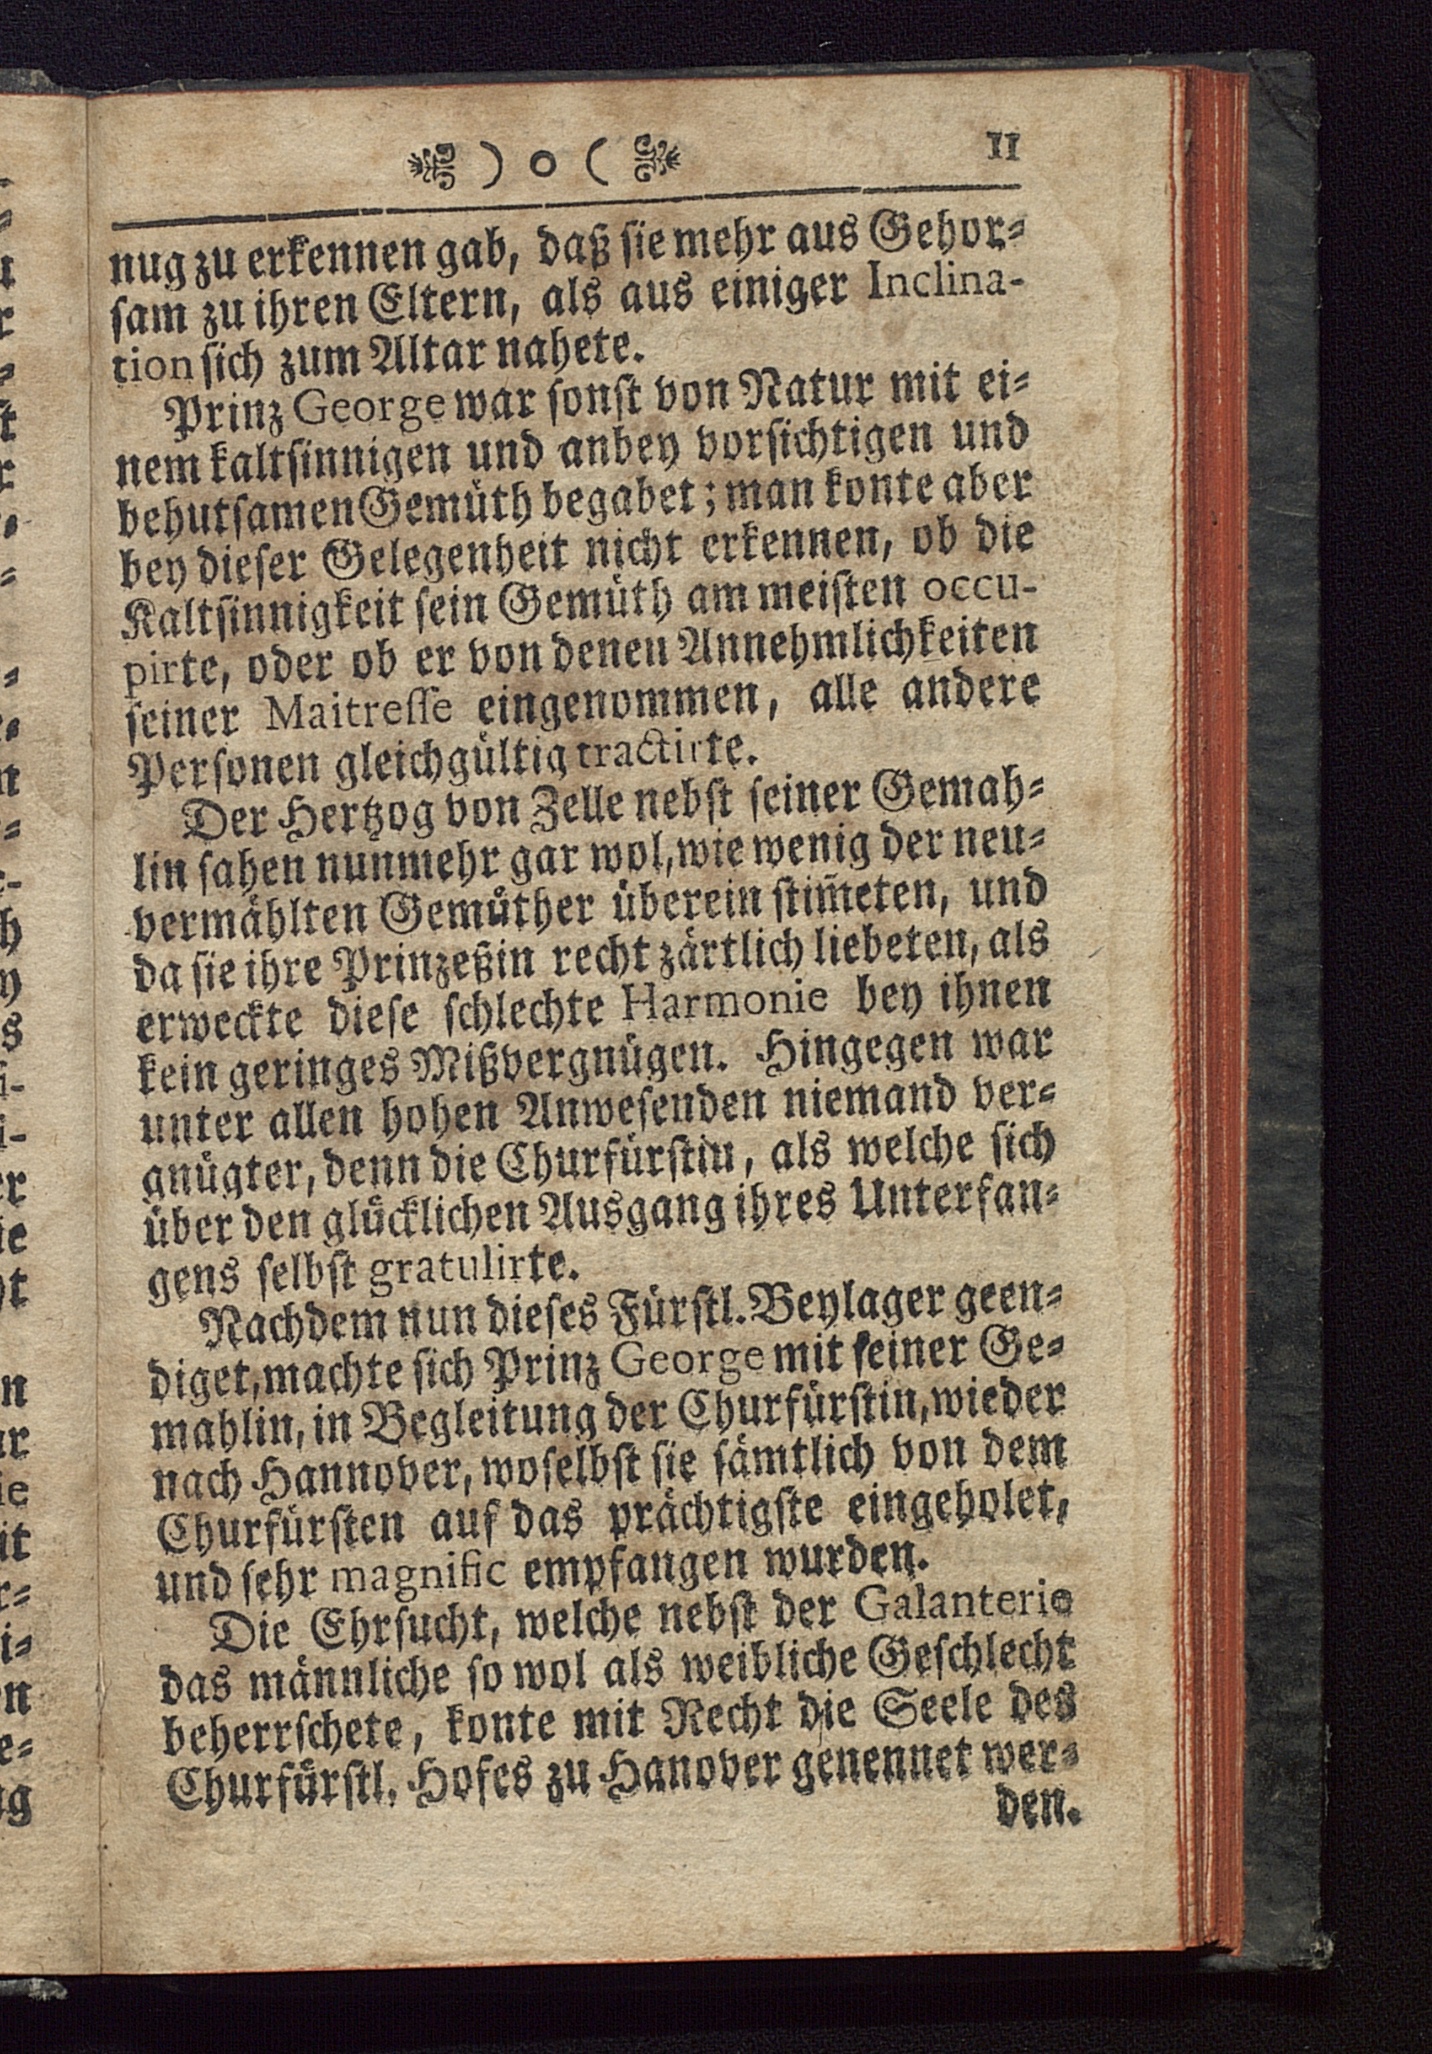 ) o ( 11
nug zu erkennen gab, daß sie mehr aus Gehor-
sam zu ihren Eltern, als aus einiger Inclina-
tion sich zum Altar nahete.
Prinz George war sonst von Natur mit ei-
nem kaltsinnigen und anbey vorsichtigen und
behutsamen Gemüth begabet; man konte aber
bey dieser Gelegenheit nicht erkennen, ob die
Kaltsinnigkeit sein Gemüth am meisten occu-
pirte, oder ob er von denen Annehmlichkeiten
seiner Maitresse eingenommen, alle andere
Personen gleichgültig tractirte.
Der Hertzog von Zelle nebst seiner Gemah-
lin sahen nunmehr gar wol, wie wenig der neu-
vermählten Gemüther überein stim̃eten, und
da sie ihre Prinzeßin recht zärtlich liebeten, als
erweckte diese schlechte Harmonie bey ihnen
kein geringes Mißvergnügen. Hingegen war
unter allen hohen Anwesenden niemand ver-
gnügter, denn die Churfürstin, als welche sich
über den glücklichen Ausgang ihres Unterfan-
gens selbst gratulirte.
Nachdem nun dieses Fürstl. Beylager geen-
diget, machte sich Prinz George mit seiner Ge-
mahlin, in Begleitung der Churfürstin, wieder
nach Hannover, woselbst sie sämtlich von dem
Churfürsten auf das prächtigste eingeholet,
und sehr magnific empfangen wurden.
Die Ehrsucht, welche nebst der Galanterie
das männliche so wol als weibliche Geschlecht
beherrschete, konte mit Recht die Seele des
Churfürstl. Hofes zu Hanover genennet wer-
den.